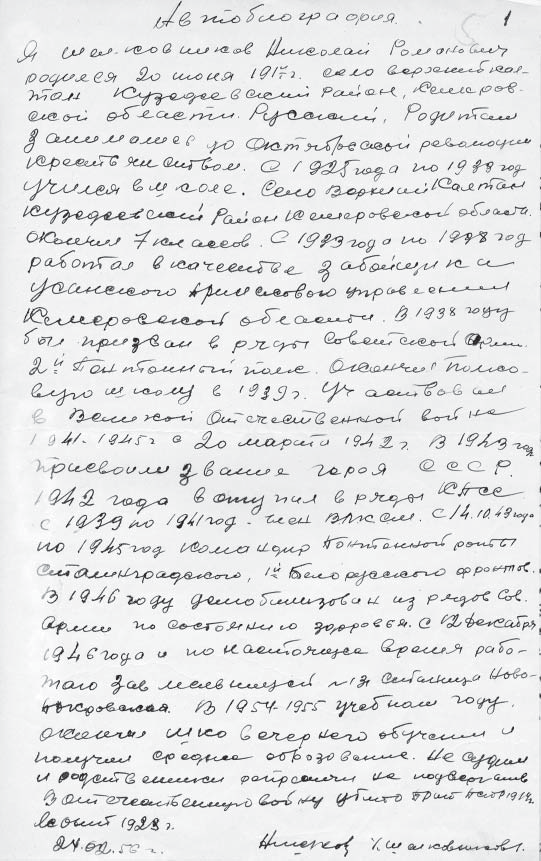 Автобиография. 1
Я Шелковников Николай Романович
родился 20 июня 1917г. село верхний кал-
тан Кузедеевский Район, Кемеров-
ской области. Русский, Родители
занимались до Октябрьской революции
крестьянством. С 1925 года по 1933 год
учился в школе. Село Верхний Калтан
Кузедеевский Район Кемеровской области.
Окончил 7 классов. С 1933 года по 1938 год
работал в качестве забойщика
Усинского приискового управления
Кемеровской области. В 1938 году
был призван в ряды Советской Арми.
2й Понтонный полк. Окончил Полко-
вую школу в 1939г. Участвовал
в Великой Отечественной войне
1941-1945г с 20 марта 1942г. В 1943 год
присвоили звание героя СССР.
1942 года вступил в ряды КПСС
с 1939 по 1941 год член ВЛКСМ. С 14.10.43 года
по 1945 год командир Понтонной роты
Сталинградского, 1й Белорусского фронтов.
В 1946 году демобилизован из рядов Сов.
Арми по состоянию здоровья. С 12 декабря
1946 года и по настоящее время рабо-
таю зав мельницей №13 станица Ново-
покровская. В 1954-1955 учебном году.
окончил шко вечернего обучения и
получил среднее образование. Не судим
и родственники репрессии не подвергались
В отечественную войну убито брат
1923г.
24.02.56г. Шелковников